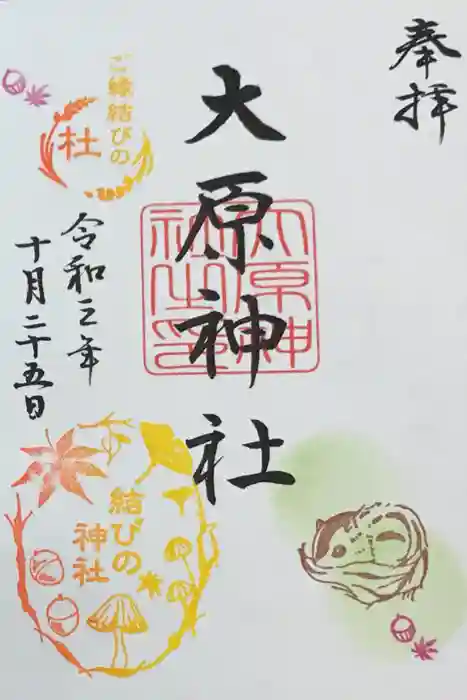 奉拝
大原神社
大原神社之印
ご縁結びの
杜
令和三年
十月二十五日
結びの
神社